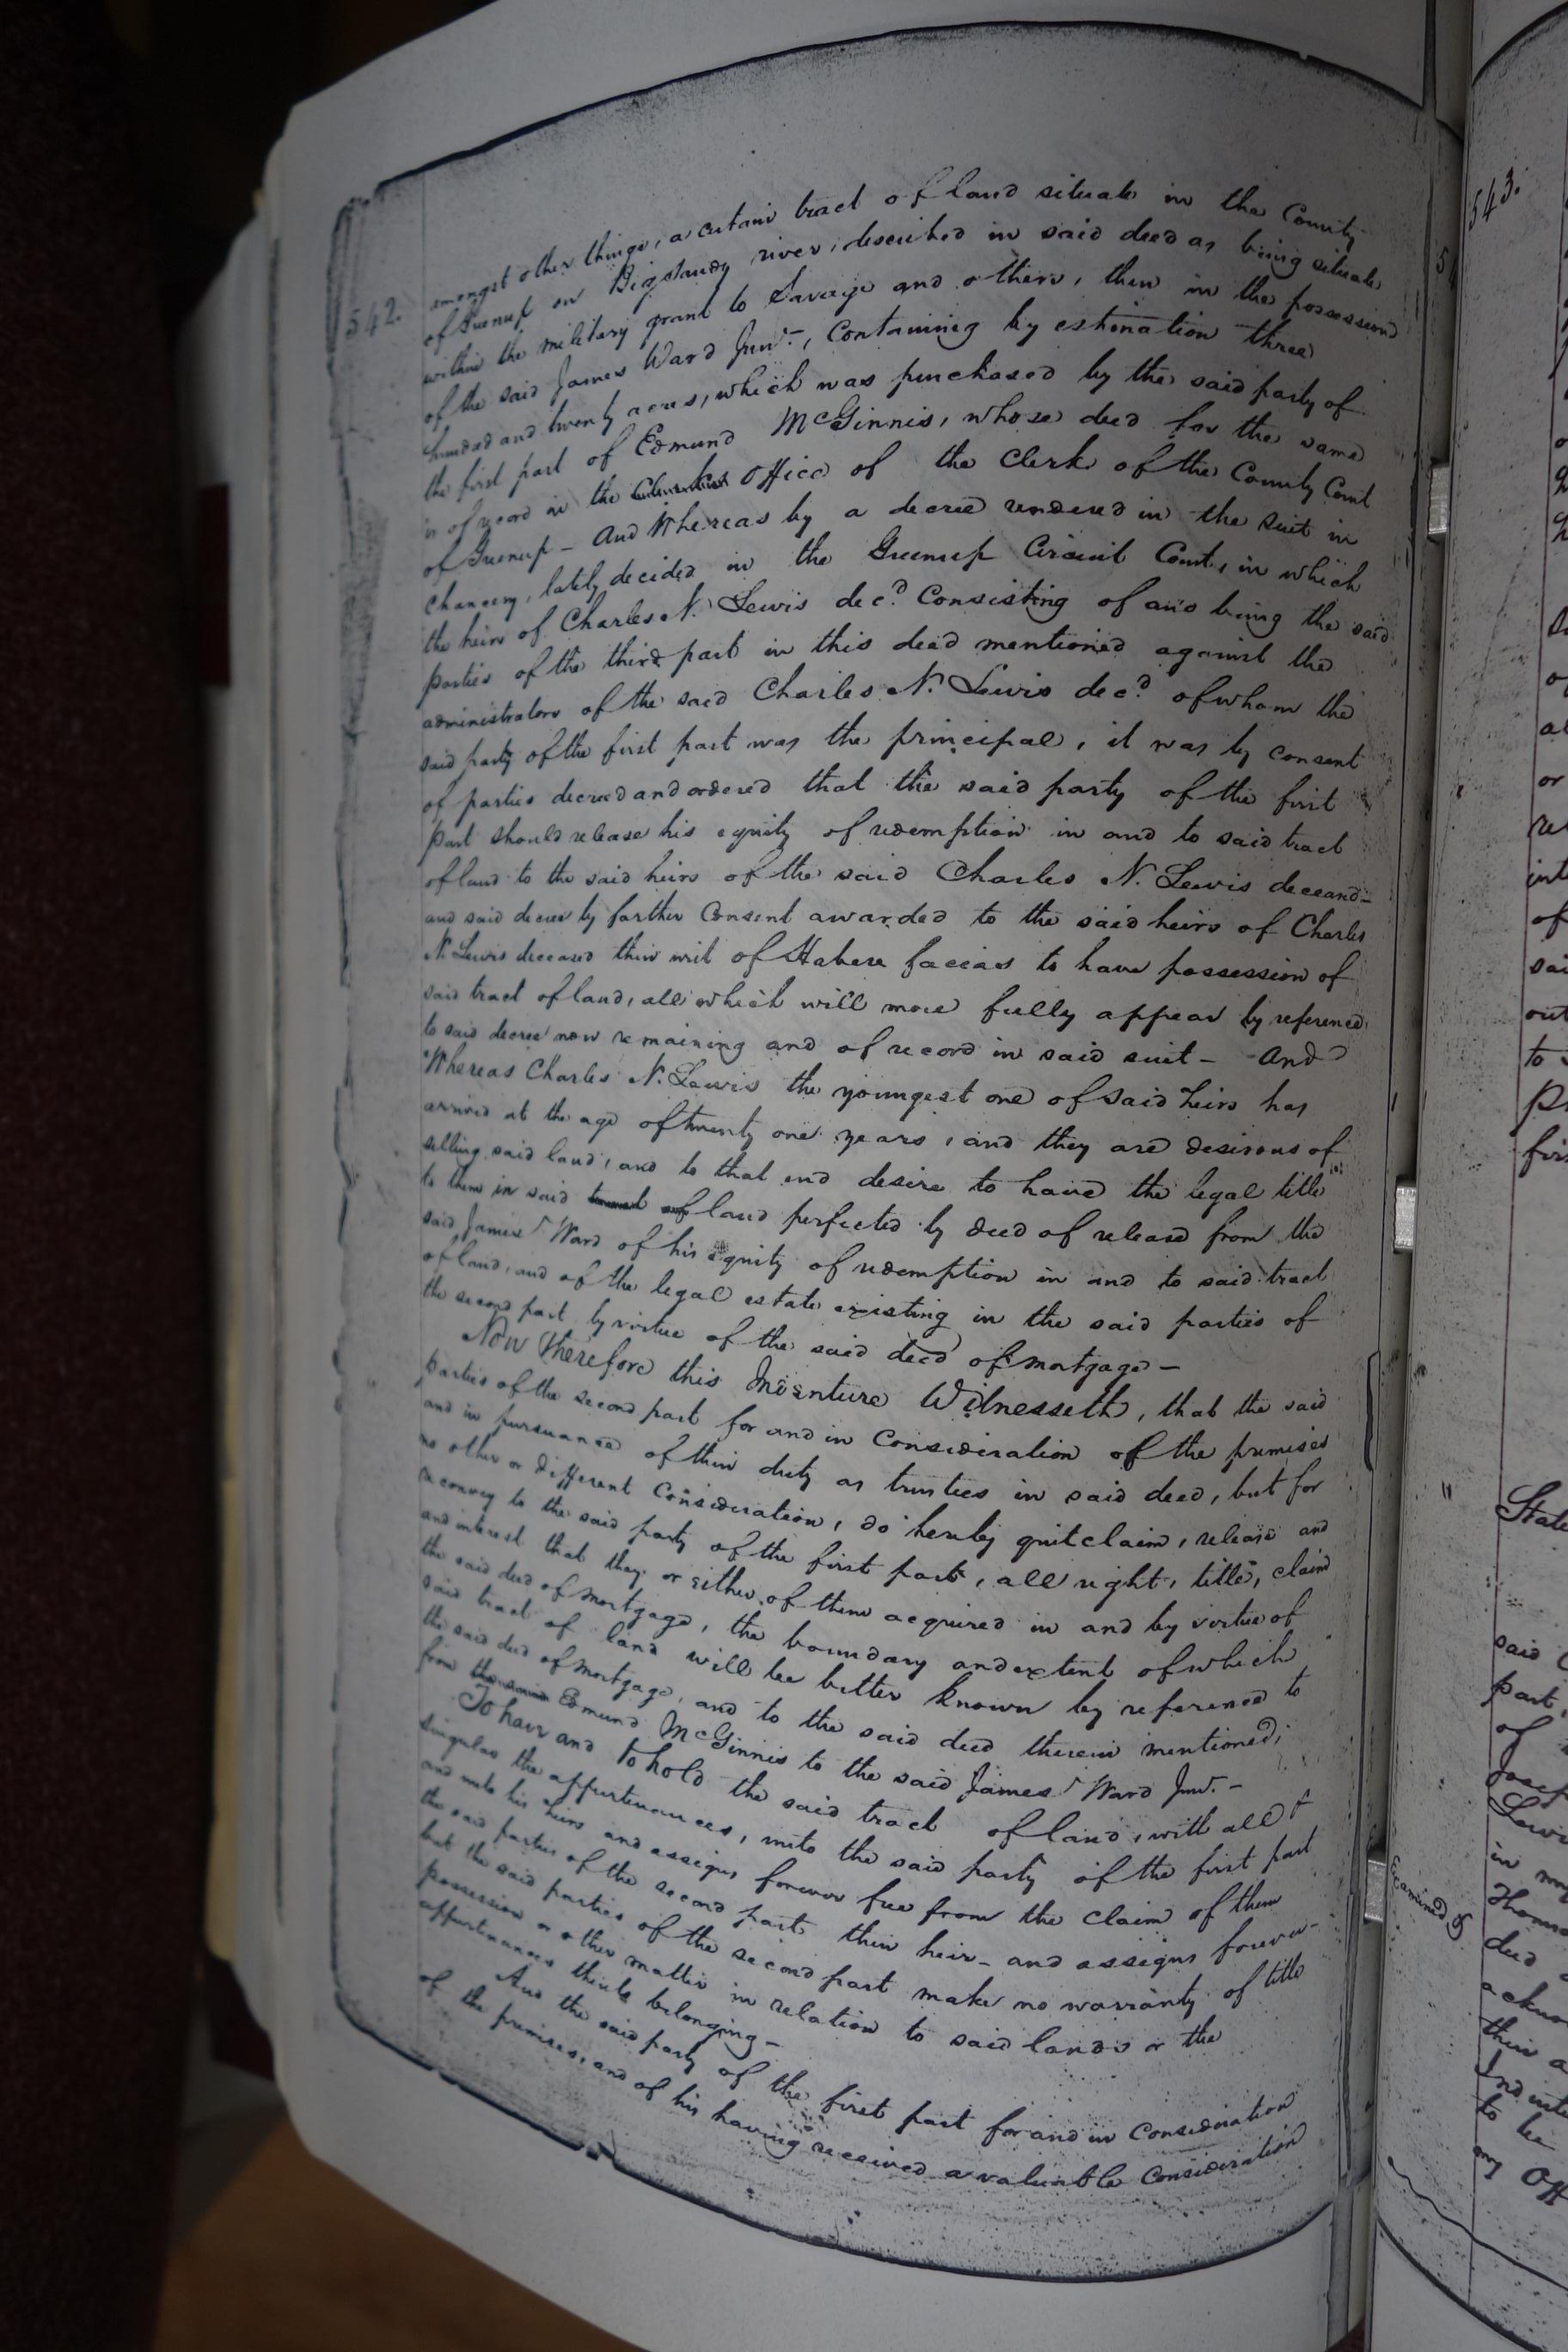 542.
amongst other things, a certain tract of land situate in the County
of Greenup on Bigsandy river, described in said deed as being situate
within the military grant to Savage and others, then in the possession
of the said James Ward Junr., Containing by estimation three
hundred and twenty acres, which was purchased by the said party of
the first part of Edmund McGinnis, whose deed for the same
is of record in the office of the Clerk of the County Court
of Greenup - And Whereas by a decree rendered in the suit in
Chancery, lately decided in the Greenup Circuit Court, in which
the heirs of Charles N. Lewis decd. Consisting of and being the said
parties of the third part in this deed mentioned against the
administrators of the said Charles N. Lewis decd. of whom the
said party of the first part was the principal, it was by consent
of parties decreed and ordered that the said party of the first
part should release his equity of redemption in and to said tract
of land to the said heirs of the said Charles N. Lewis deceasd -
and said decree by farther Consent awarded to the said heirs of Charles
N. Lewis deceased their writ of Habere facias to have possession of
said tract of land, all which will more fully appear by reference
to said decree now remaining and of record in said suit - And
Whereas Charles N. Lewis the youngest one of said heirs has
arrived at the age of twenty one years, and they are desirous of
selling said land, and to that end desire to have the legal title
to them in said land perfected by deed of release from the
said James Ward of his equity of redemption in and to said tract
of land, and of the legal estate existing in the said parties of
the second part by virtue of the said deed of mortgage -
Now Therefore this Indenture Witnesseth, that the said
parties of the second part for and in Consideration of the premises
and in pursuance of their duty as trustees in said deed, but for
no other or different Consideration, do hereby quitclaim, release and
reconvey to the said party of the first part, all right, title, claim
and interest that they or either of them acquired in and by virtue of
the said deed of mortgage, the boundary and extent of which
said tract of land will be better known by reference to
the said deed of mortgage, and to the said deed therein mentioned,
from the said Edmund McGinnis to the said James Ward Junr. -
To have and to hold the said tract of land, with all &
singular the appurtenances, unto the said party of the first part
and unto his heirs and assigns forever free from the claim of them
the said parties of the second part their heirs and assigns forever -
but the said parties of the second part make no warranty of title
possession or other matter in relation to said lands or the
appurtenances thereto belonging -
And the said party of the first part for and in Consideration
of the premises, and of his having received a valuable Consideration
543.
State
said
part
of
in my
deed
to be
my Off
Examined &